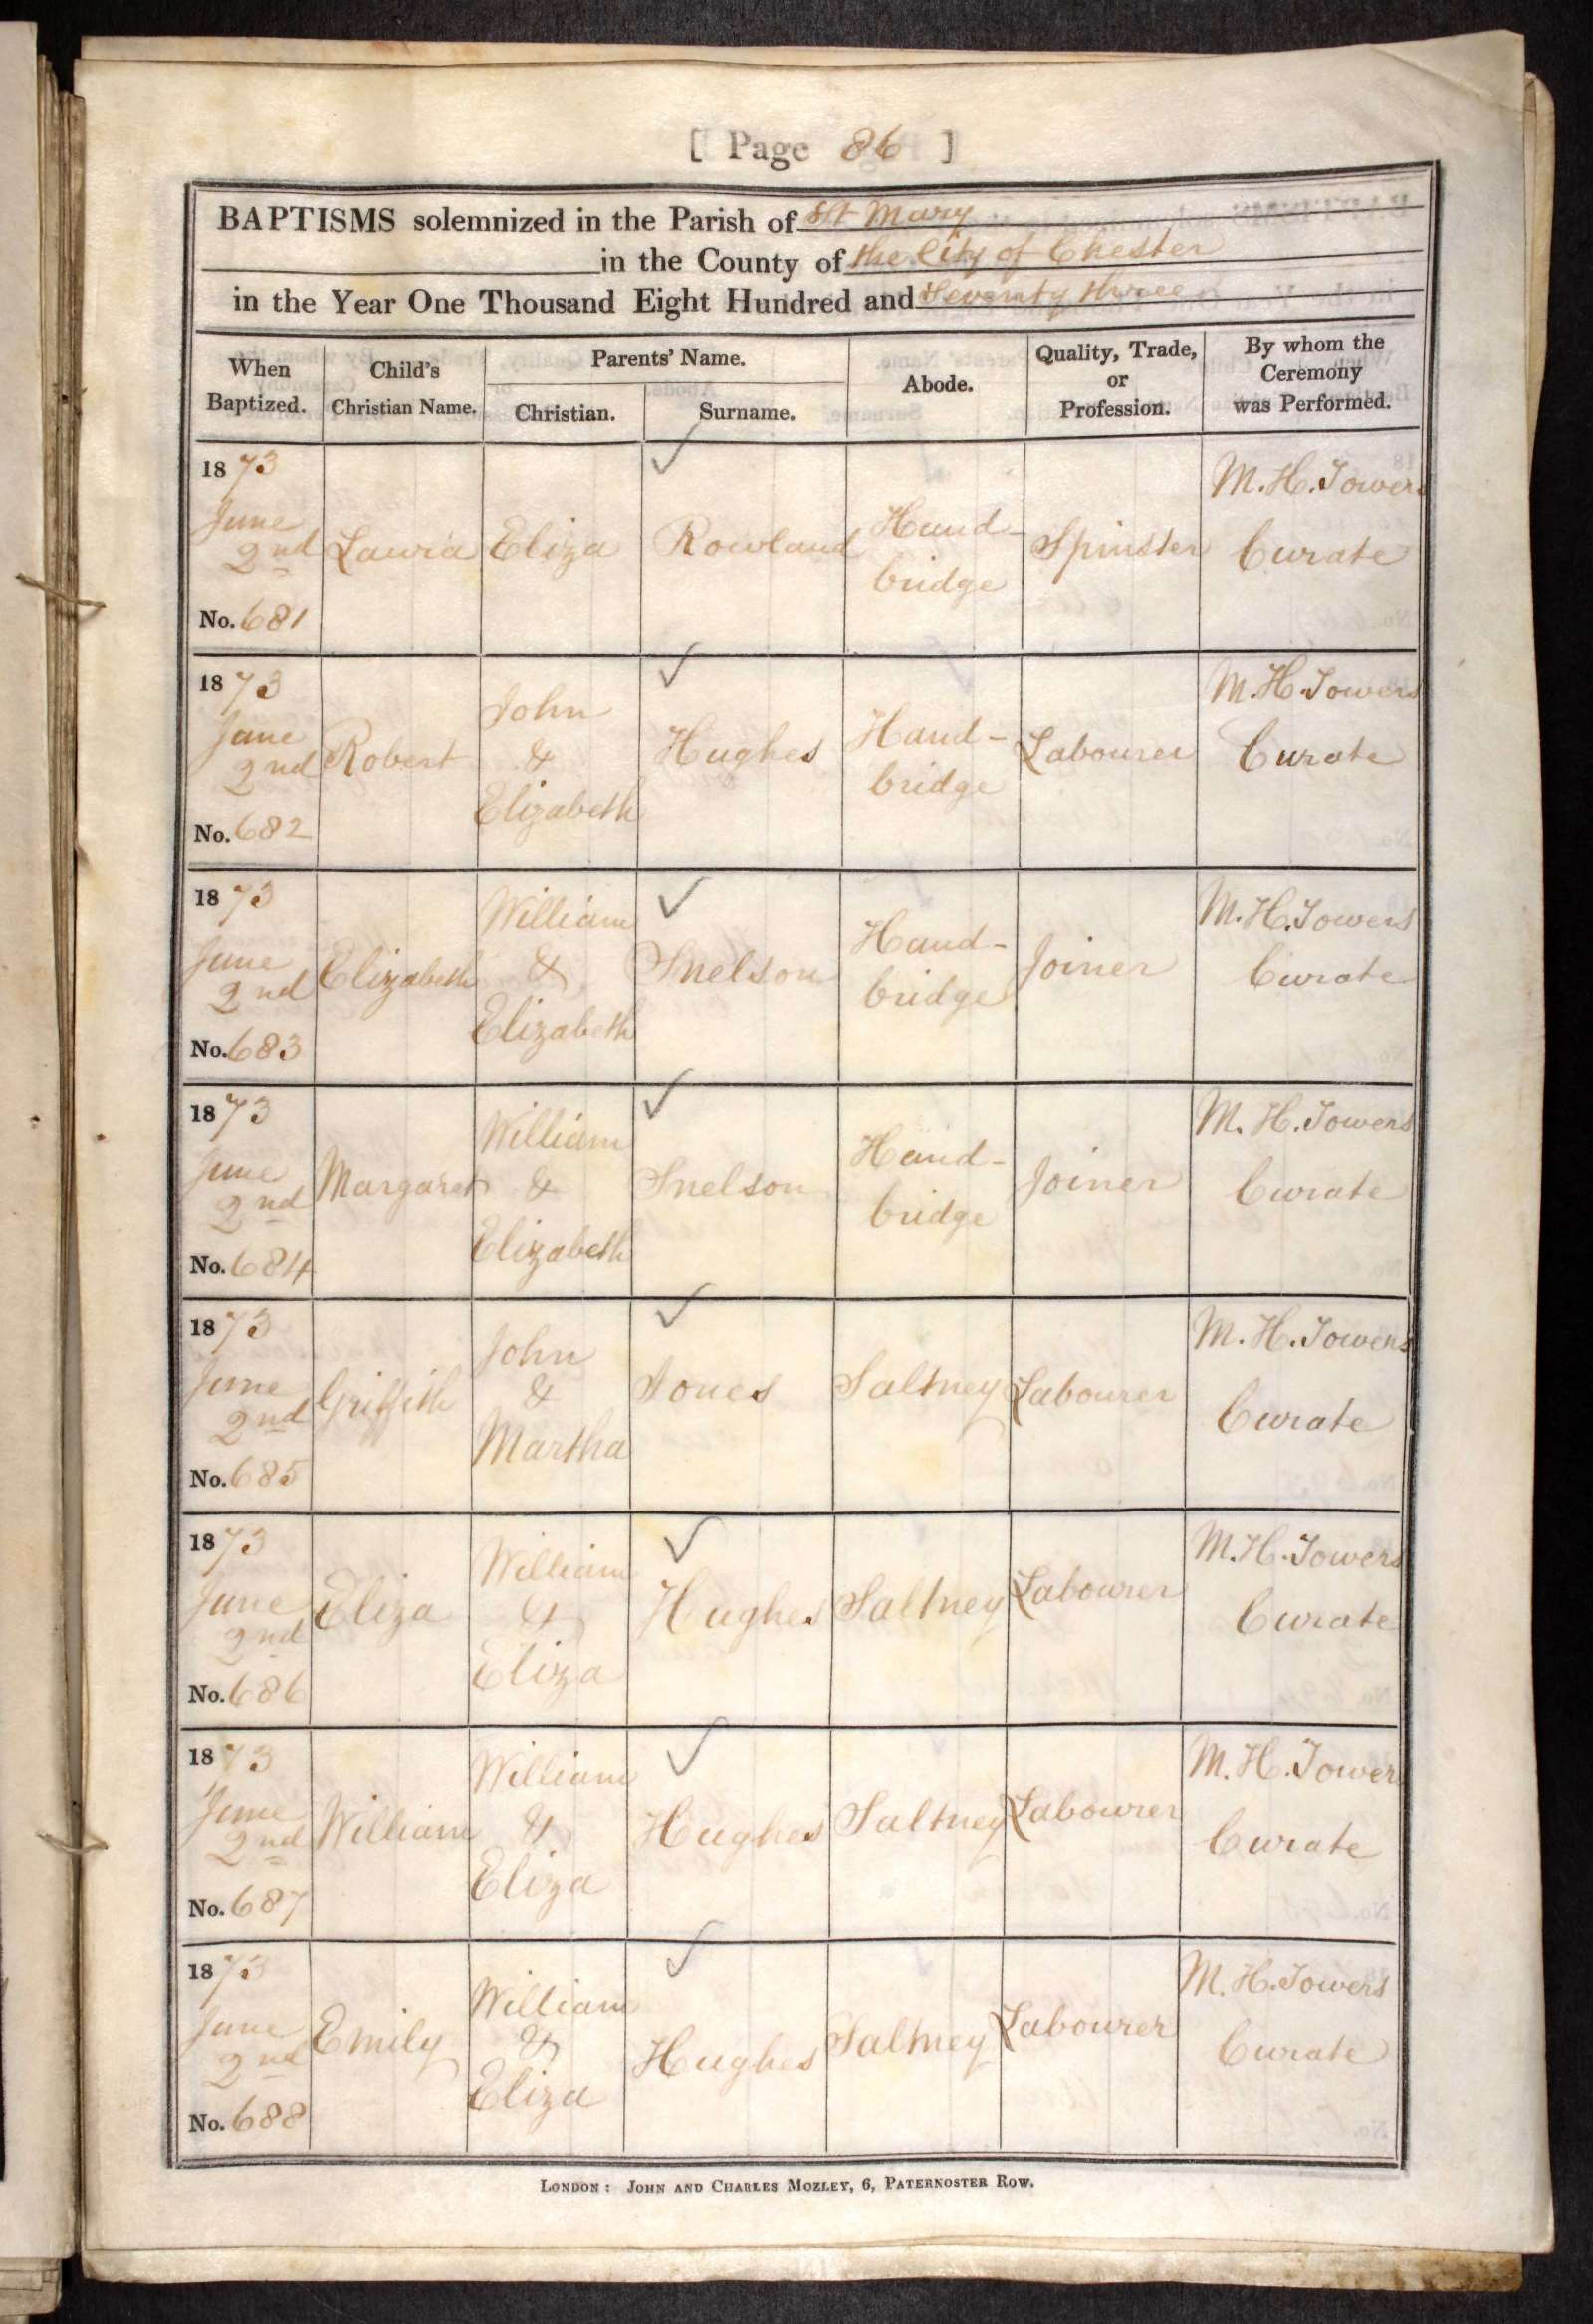 [ Page 86 ]
BAPTISMS solemnized in the Parish of St Mary
in the County of the City of Chester
in the Year One Thousand Eight Hundred and Seventy three
When Baptized. Child's Christian Name. Parents' Name. Christian. Surname. Abode. Quality, Trade, or Profession. By whom the Ceremony was Performed.
1873
June
2nd
No. 681
Laura
Eliza
Rowland
Hand-
bridge
Spinster
M. H. Towers
Curate
1873
June
2nd
No. 682
Robert
John
&
Elizabeth
Hughes
Hand-
bridge
Labourer
M. H. Towers
Curate
1873
June
2nd
No. 683
Elizabeth
William
&
Elizabeth
Snelson
Hand-
bridge
Joiner
M. H. Towers
Curate
1873
June
2nd
No. 684
Margaret
William
&
Elizabeth
Snelson
Hand-
bridge
Joiner
M. H. Towers
Curate
1873
June
2nd
No. 685
Griffith
John
&
Martha
Jones
Saltney
Labourer
M. H. Towers
Curate
1873
June
2nd
No. 686
Eliza
William
&
Eliza
Hughes
Saltney
Labourer
M. H. Towers
Curate
1873
June
2nd
No. 687
William
William
&
Eliza
Hughes
Saltney
Labourer
M. H. Towers
Curate
1873
June
2nd
No. 688
Emily
William
&
Eliza
Hughes
Saltney
Labourer
M. H. Towers
Curate
LONDON: JOHN AND CHARLES MOZLEY, 6, PATERNOSTER ROW.